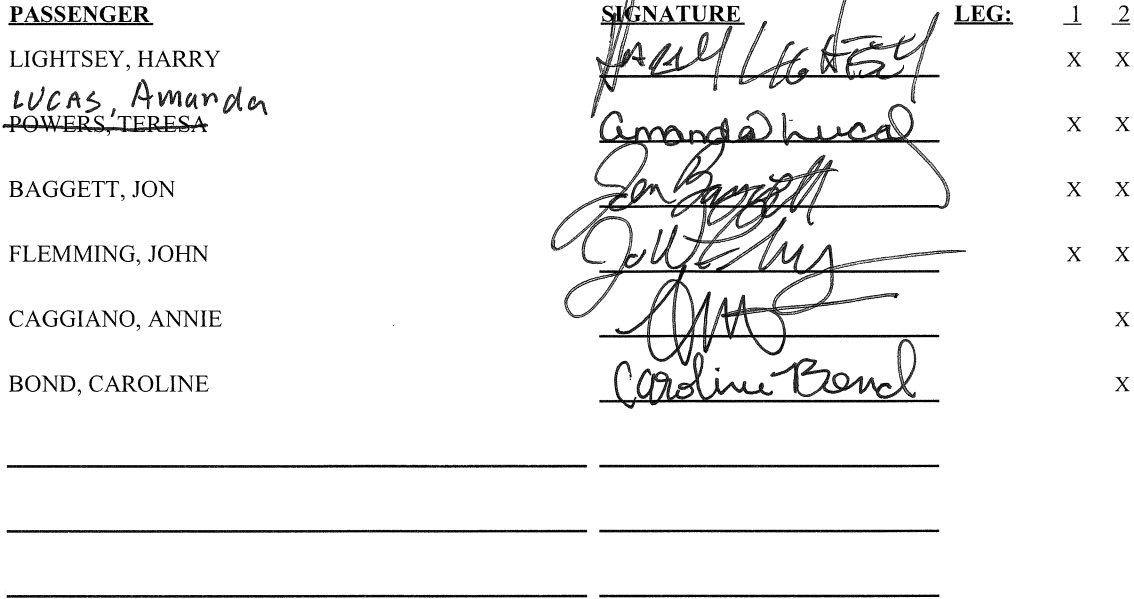 PASSENGER SIGNATURE LEG: 1 2
LIGHTSEY, HARRY Harry Lightsey X X
LUCAS, Amanda
POWERS, TERESA Amanda Lucas X X
BAGGETT, JON Jon Baggett X X
FLEMMING, JOHN X X
CAGGIANO, ANNIE X
BOND, CAROLINE Caroline Bond X